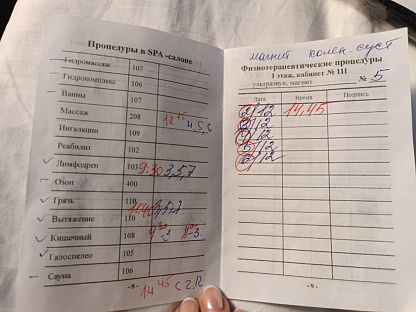 Процедуры в SPA -салоне
Гидромассаж 107
Гидрокомплекс 106
Ванны 107
Массаж 208 12 15 4 5, 6
Ингаляции 109
Реабилит 102
Лимфодрен 103 9:30 3,5,7
Озон 400
Грязь 110
Вытяжение 110 3,5,7
Кишечный 108 9 30
Галоспелео 105
Сауна 106
14 45
- 8 -
магнит колен. суст
Физиотерапевтические процедуры
1 этаж, кабинет № 111
ультразвук, магнит № 5
Дата Время Подпись
2/12 14,45
3/12
4/12
5/12
/12
- 9 -